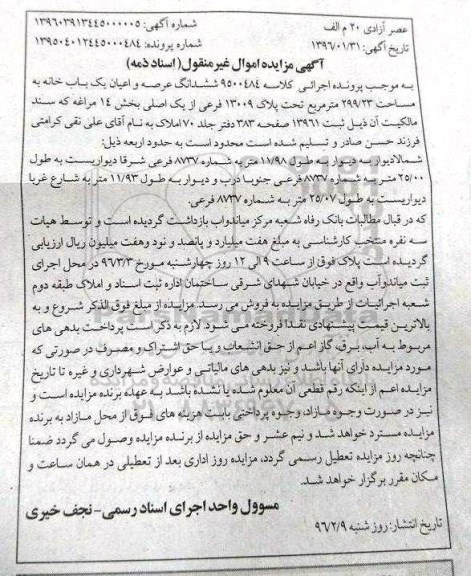 عصر آزادی ۲۰ م الف
شماره آگهی: ۱۳۹۶۰۳۹۱۳۴۴۵۰۰۰۰۰۵
تاریخ آگهی: ۱۳۹۶/۰۱/۳۱
شماره پرونده: ۱۳۹۵۰۴۰۱۲۴۴۵۰۰۰۴۸۴
آگهی مزایده اموال غیرمنقول( اسناد ذمه)
به موجب پرونده اجرائی کلاسه ۹۵۰۰۴۸۴ ششدانگ عرصه و اعیان یک باب خانه به
مساحت ۲۹۹/۲۳ مترمربع تحت پلاک ۱۳۰۰۹ فرعی از یک اصلی بخش ۱۴ مراغه که سند
مالکیت آن ذیل ثبت ۱۳۹۶۱ صفحه ۳۸۳ دفتر جلد ۷۰ املاک به نام آقای علی نقی کرامتی
فرزند حسن صادر و تسلیم شده است محدود است به حدود اربعه ذیل:
شمالا دیوار به دیوار به طول ۱۱/۹۸ متر به شماره ۸۷۳۷ فرعی شرقا دیواریست به طول
۲۵/۰۰ متر به شماره ۸۷۳۷ فرعی جنوبا درب و دیوار به طول ۱۱/۹۳ متر به شارع غربا
دیواریست به طول ۲۵/۰۷ متر به شماره ۸۷۳۷ فرعی.
که در قبال مطالبات بانک رفاه شعبه مرکز میاندواب بازداشت گردیده است و توسط هیات
سه نفره منتخب کارشناسی به مبلغ هفت میلیارد و پانصد و نود وهفت میلیون ریال ارزیابی
گردیده است پلاک فوق از ساعت ۹ الی ۱۲ روز چهارشنبه مورخ ۹۶/۳/۳ در محل اجرای
ثبت میاندوآب واقع در خیابان شهدای شرقی ساختمان اداره ثبت اسناد و املاک طبقه دوم
شعبه اجرائیات از طریق مزایده به فروش می رسد. مزایده از مبلغ فوق الذکر شروع و به
بالاترین قیمت پیشنهادی نقدا فروخته می شود. لازم به ذکر است پرداخت بدهی های
مربوط به آب، برق، گاز اعم از حق انشعاب و یا حق اشتراک و مصرف در صورتی که
مورد مزایده دارای آنها باشد و نیز بدهی های مالیاتی و عوارض شهرداری و غیره تا تاریخ
مزایده اعم از اینکه رقم قطعی آن معلوم شده یا نشده باشد به عهده برنده مزایده است و
نیز در صورت وجود مازاد، وجوه پرداختی بابت هزینه های فوق از محل مازاد به برنده
مزایده مسترد خواهد شد و نیم عشر و حق مزایده از برنده مزایده وصول می گردد ضمنا
چنانچه روز مزایده تعطیل رسمی گردد، مزایده روز اداری بعد از تعطیلی در همان ساعت و
مکان مقرر برگزار خواهد شد.
مسوول واحد اجرای اسناد رسمی- نجف خیری
تاریخ انتشار: روز شنبه ۹۶/۲/۹